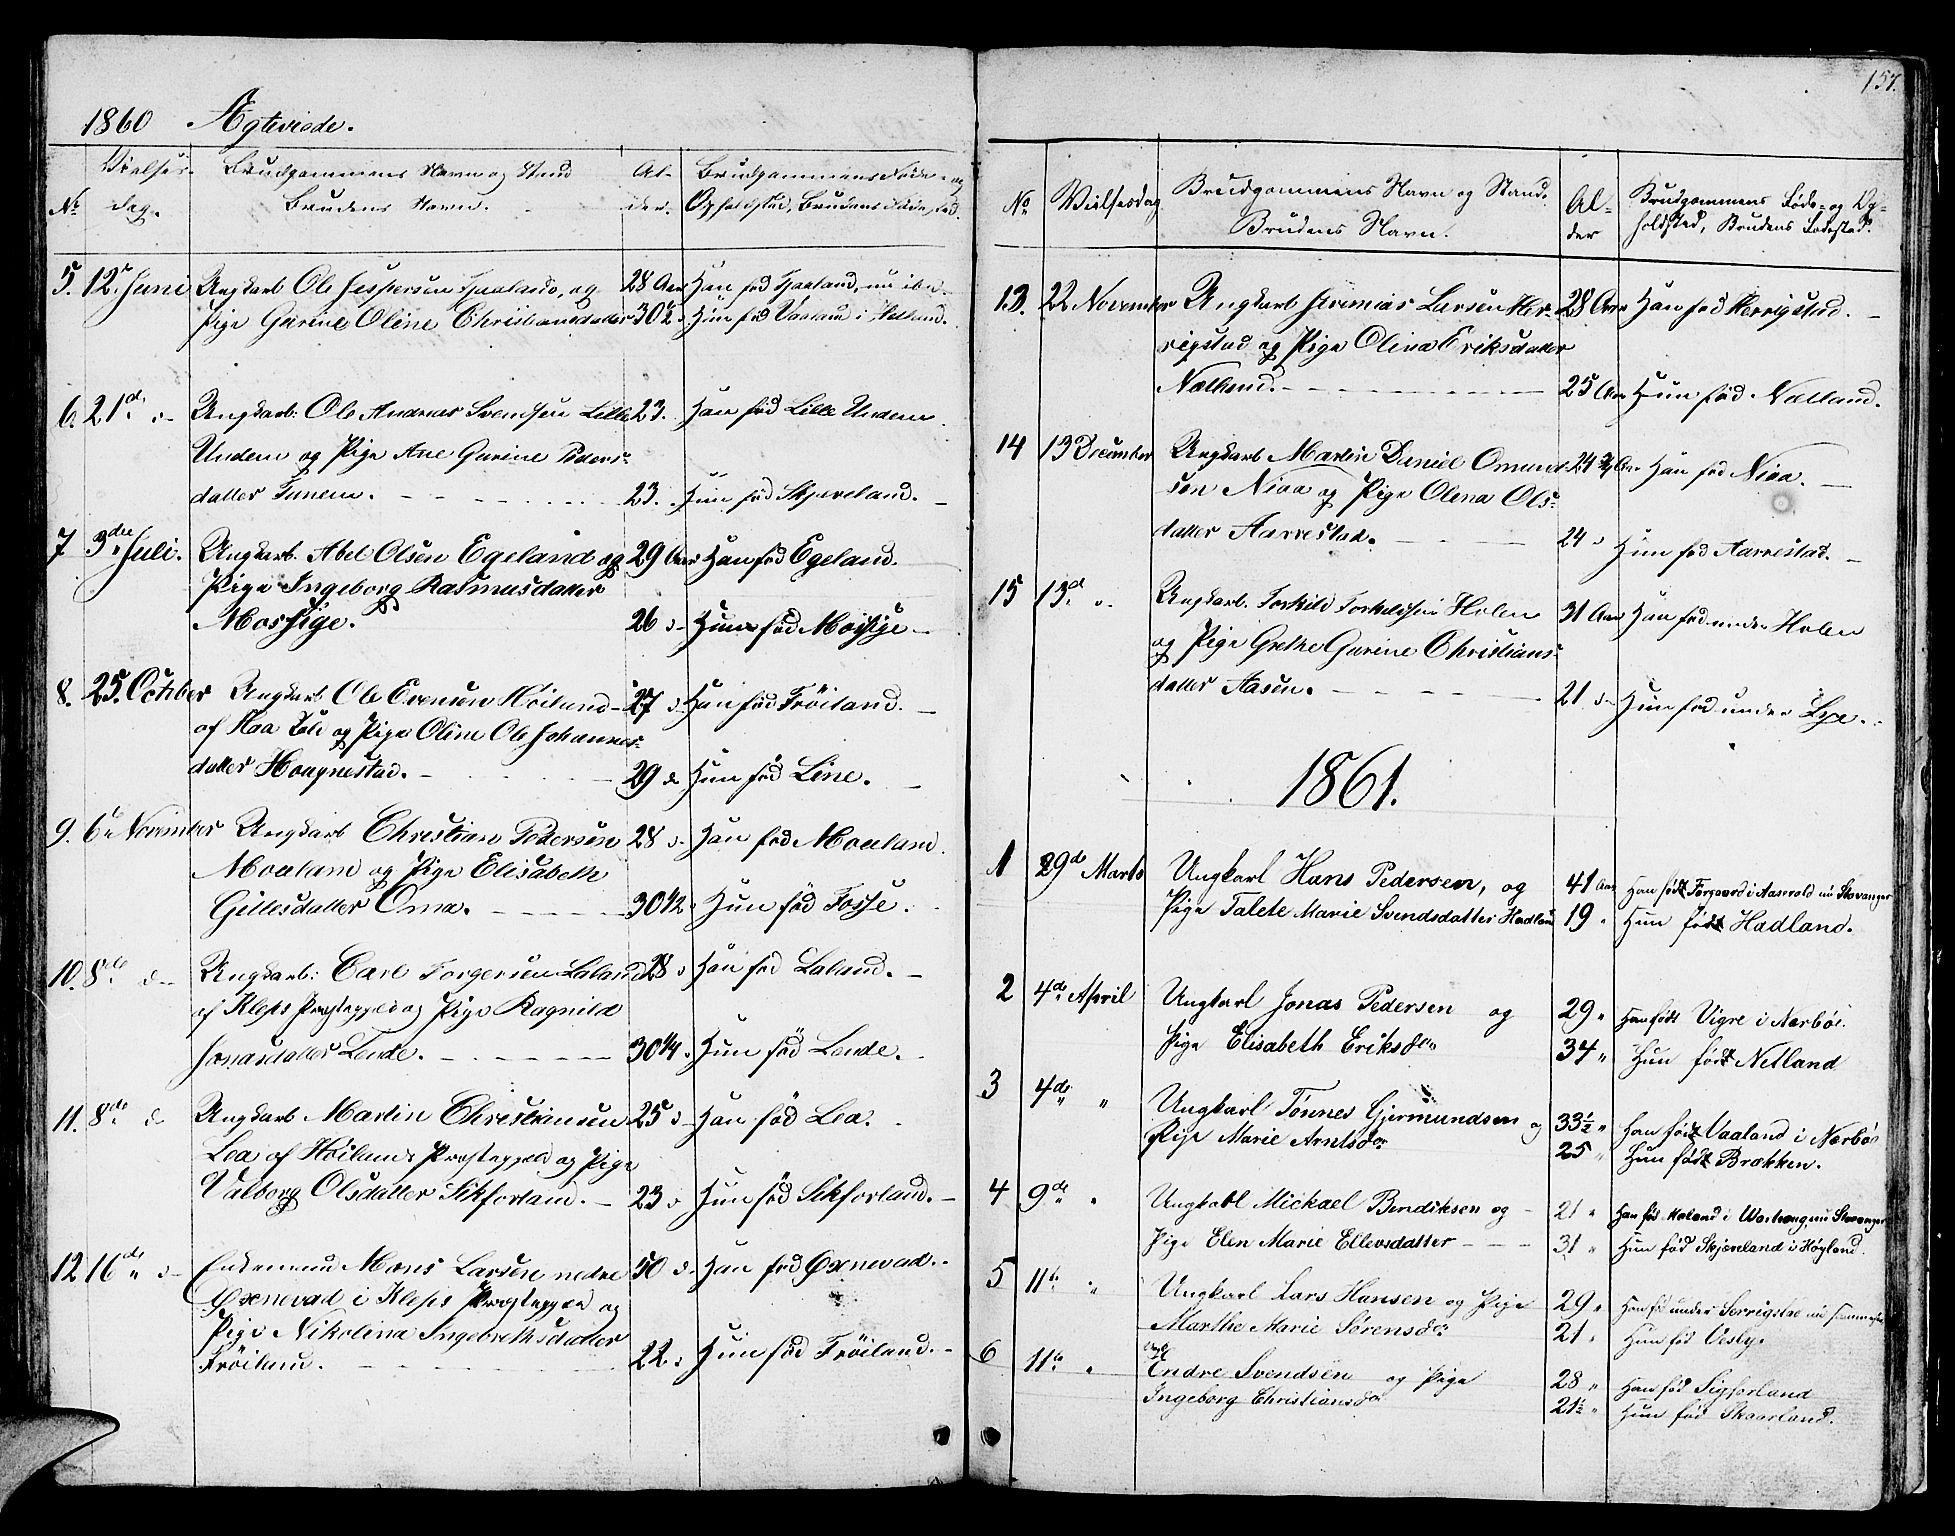 1860 Ægteviede.
No Vielses-dag. Brudgommens Navn og Stand Brudens Navn. Al-der. Brudgommens Føde- og Opholdsted, Brudens Fødested.
5. 12te Juni Ungkarl Ole Jespersen Tjaaland, og 28 Aar Han fød Tjaaland, nu ibd.
Pige Gurine Oline Christiansdatter 30½ " Hun fød Vaaland i Hetland.
6. 21de d– Ungkarl: Ole Andreas Svendsen Lille 23. Han fød Lille Undem
Undem og Pige Ane Gurine Peders-
datter Tunem. 23. Hun fød Skjæveland.
7 3die Juli. Ungkarl. Abel Olsen Egeland og 29 Aar Han fød Egeland.
Pige Ingeborg Rasmusdatter
Mossige. 26 d– Hun fød Mossige
8. 25. October Ungkarl Ole Evensen Höiland 27 d– Han fød Fröiland.
af Haa Sld og Pige Oline Ole Johannes-
datter Hougnestad. 29 d. Hun fød Line.
9. 6te November Ungkarl Christian Pedersen 28 d– Han fød Moeland.
Moeland og Pige Elisabeth
Gillesdatter Oma. 30½ " Hun fød Fosse.
10. 8de d– Ungkarl: Carl Torgersen Laland 28 d Han fød Laland.
af Kleps Præstegjeld og Pige Ragnild
Jonasdatter Lende. 30¼ . Hun fød Lende.
11. 8de d Ungkarl Martin Christiansen 25 d– Han fød Lea.
Lea af Höilands Præstegjeld og Pige
Valborg Olsdatter Sikforland. 23 d Hun fød Sikforland.
12 16de d– Enkemand Mons Larsen nedre 50 d– Han fød Øxnevad.
Øxnevad i Kleps Præstegjeld og
Pige Nikolina Ingebrethsdatter
Fröiland. 22. d Hun fød Fröiland.
157.
No Vielsesdag Brudgommens Navn og Stand. Brudens Navn. Al-der Brudgommens Føde- og Op-holdsted, Brudens Fødested.
13. 22 November Ungkarl Jeremias Larsen Her- 28 Aar Han fød Herrigstad.
rigstad og Pige Olina Eriksdatter
Nælland. 25 Aar Hun fød Nælland.
14 13 December Ungkarl Martin Daniel Omund- 24 ¾ Aar Han fød Niaa.
sen Niaa og Pige Olena Ols-
datter Aarrestad. 24 d Hun fød Aarrestad.
15 13de d. Ungkarl. Torkild Torkeldsen Holen 31 Aar Han fød under Holen
og Pige Grethe Gurine Christians-
datter Aasen. 21 d– Hun fød under Lye.
1861.
1 29de Marts Ungkarl Hans Pedersen, og 41 Aar Han født Torgaard i Aaserald nu Stavanger
Pige Talete Marie Svendsdatter Hadland 19 " Hun født Hadland.
2 4de April Ungkarl Jonas Pedersen og 29 " Han født Vigre i Nærbö.
Pige Elisabeth Eriksdr 34 " Hun født Netland
3 4de " Ungkarl Tønnes Gjermundsen og 33½ " Han født Vaaland i Nærbö
Pige Marie Arntsdr 25 " Hun født Brækken.
4 9de " Ungkarl Mickael Bendiksen og 21 " Han fød Meland i nu Stavanger
Pige Elen Marie Ellevsdatter 31 " Hun fød Skjæveland i Høyland.
5 11te " Ungkarl Lars Hansen og Pige 29 " Han fd under nu
Marthe Marie Sørensdr 21 " Hun fød Vesby.
6 11te " Ungk Endre Svendsen og Pige 28 " Han fød Sigforland
Ingeborg Christiansdr 21½ " Hun fød Skaarland.